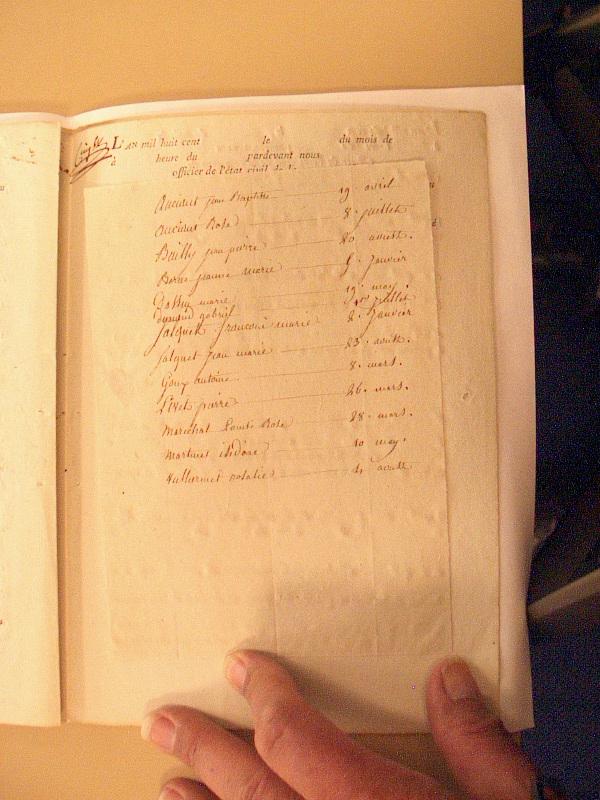 L'AN mil huit cent le du mois de
à heure du pardevant nous
officier de l'état civil de l'
jean Baptiste 19. avril
Rose 8. juillet
Bailly jean pierre 20 aoust.
jeanne marie 5. janvier
marie 19. may.
dumand gabriel 30 juillet
jacquet françois marie 2. janvier
jacquet jean marie 23. aoust.
Goux antoine 8. mars.
Livet pierre 26. mars.
Marechal Louise Rose 28. mars.
Martinet isidore 10 may.
Vullermet natalie 4 aoust